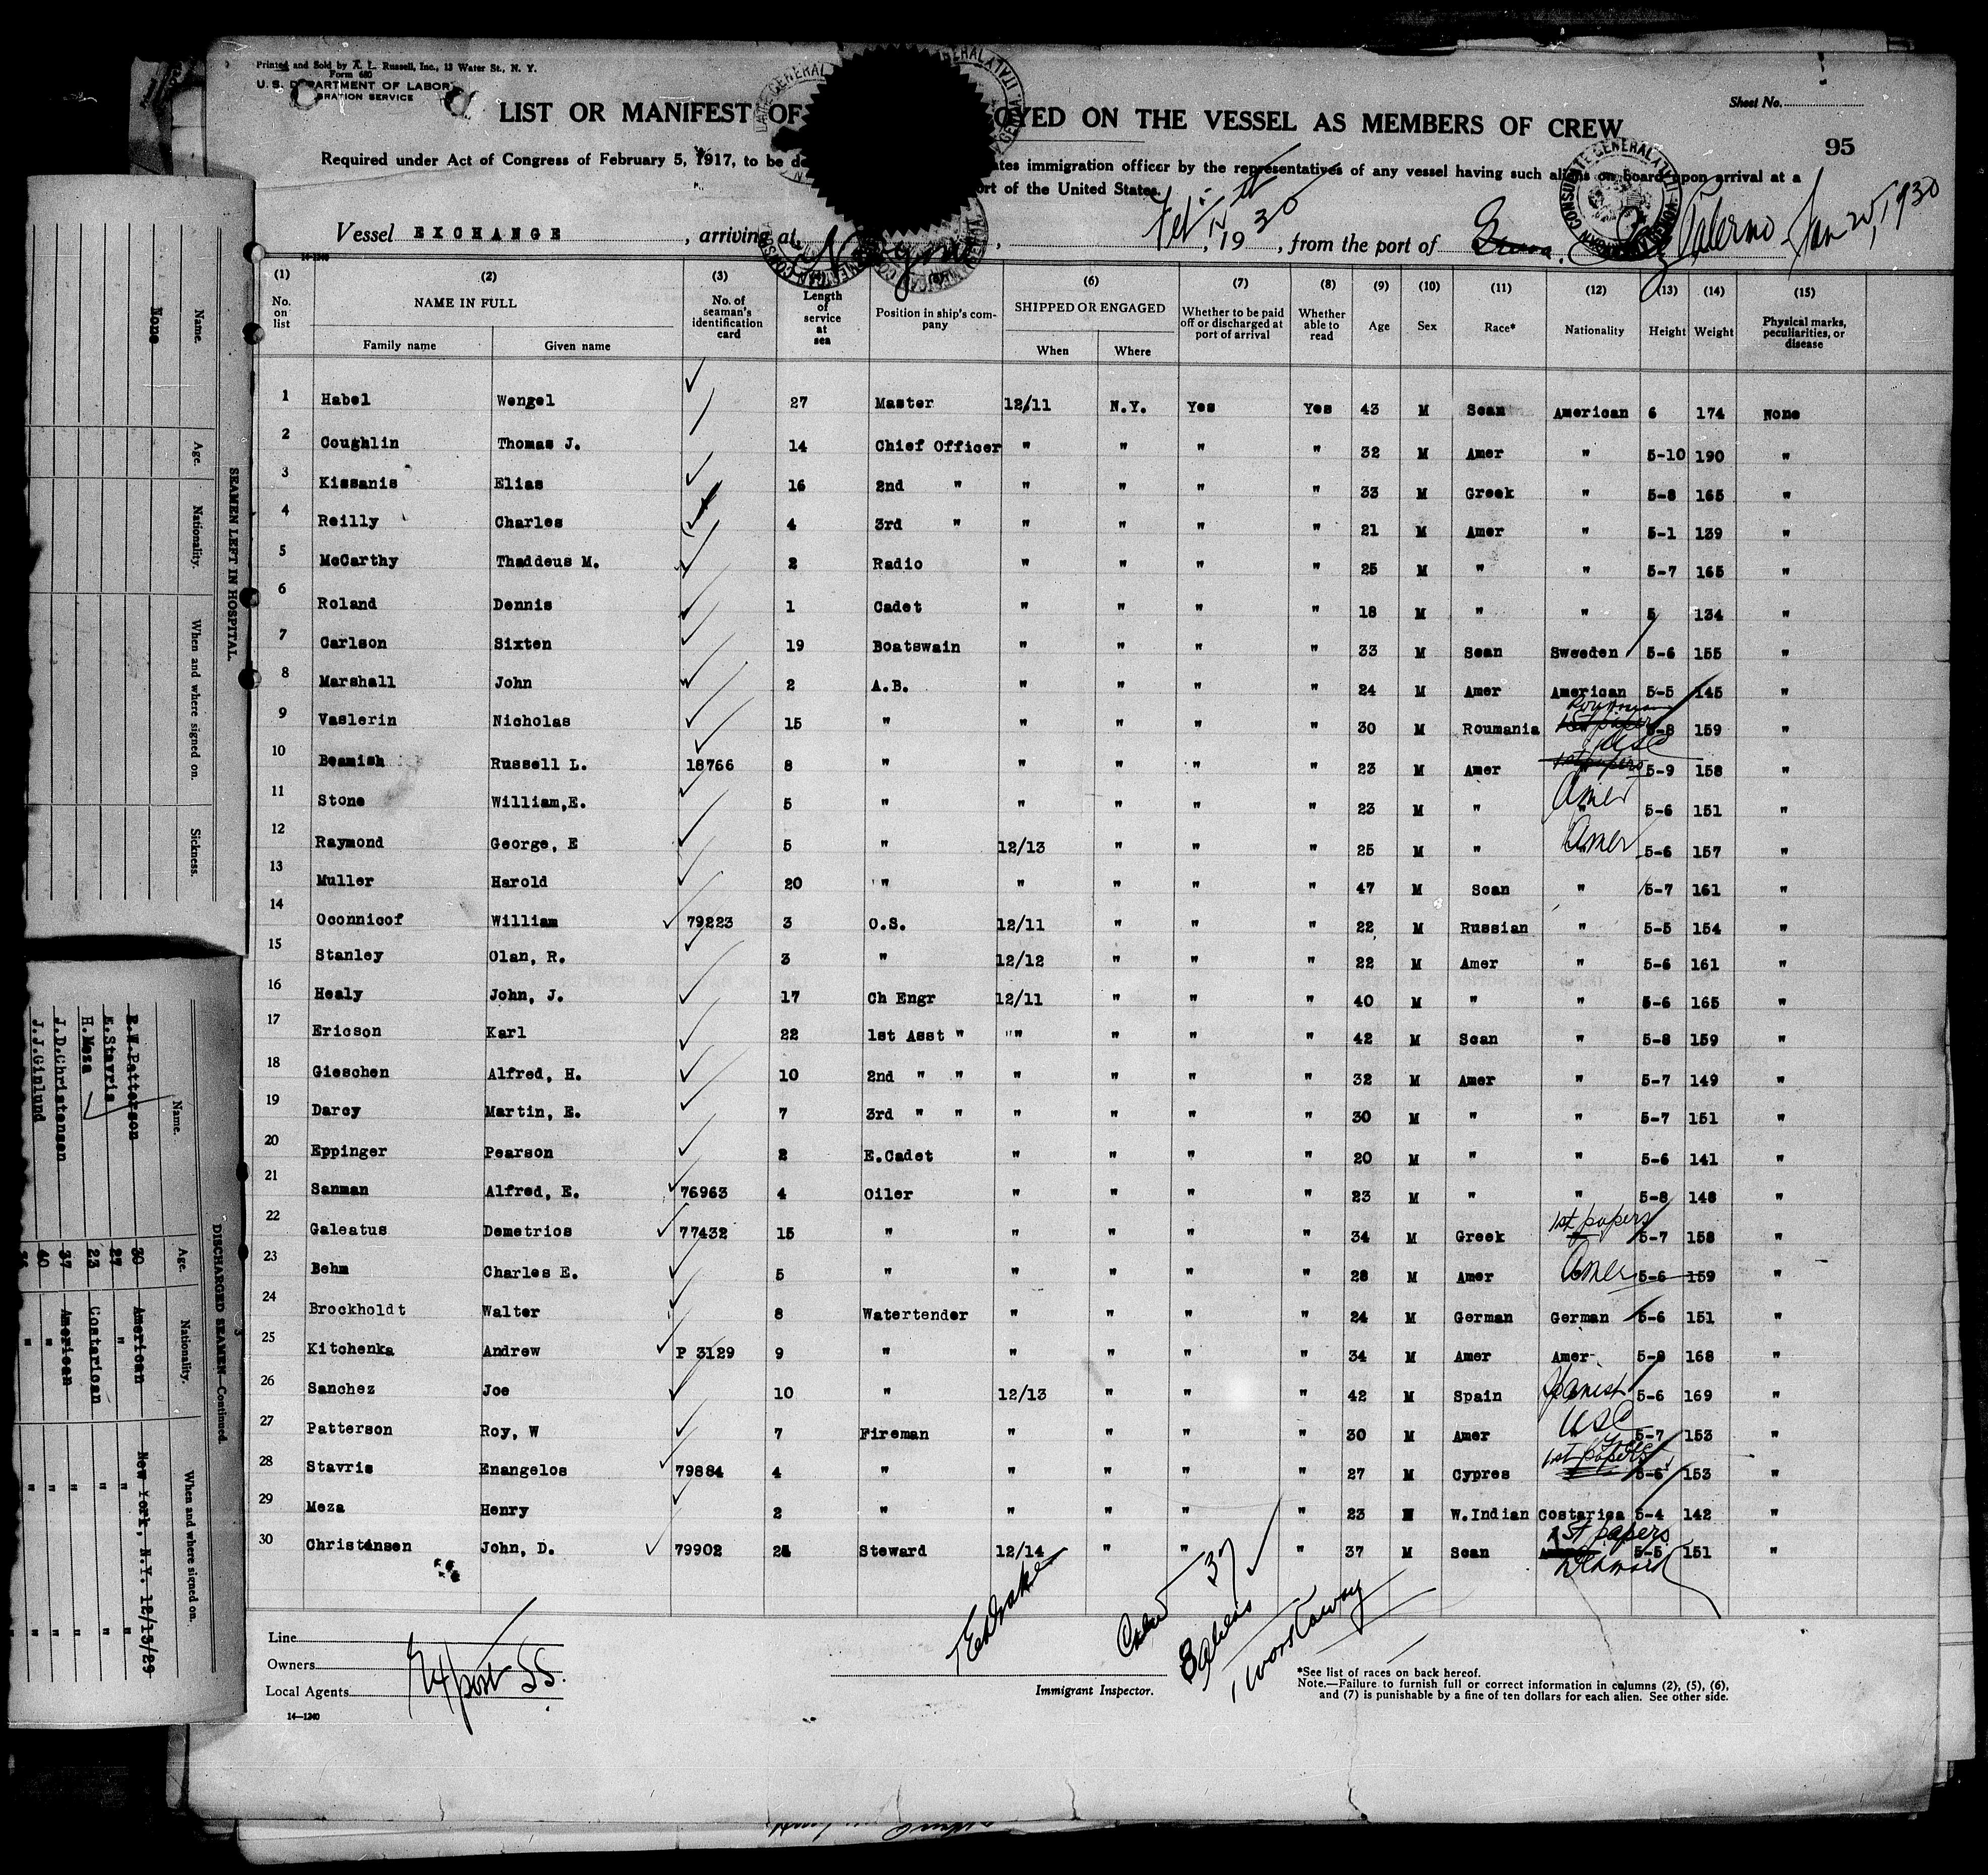 Printed and Sold by A. L. Russell, Inc., 13 Water St., N. Y.
Form 680
U. S. DEPARTMENT OF LABOR
Sheet No.
LIST OR MANIFEST OF OYED ON THE VESSEL AS MEMBERS OF CREW
95
Required under Act of Congress of February 5, 1917, to be de ates immigration officer by the representatives of any vessel having such aliens on board upon arrival at a
rt of the United States.
Vessel EXCHANGE , arriving at , 1930 , from the port of Palermo Jan 20, 1930
14-1240
(1) (2) (3) (6) (7) (8) (9) (10) (11) (12) (13) (14) (15)
No. on list NAME IN FULL No. of seaman's identification card Length of service at sea Position in ship's company SHIPPED OR ENGAGED Whether to be paid off or discharged at port of arrival Whether able to read Age Sex Race* Nationality Height Weight Physical marks, peculiarities, or disease
Family name Given name When Where
1 Habel Wengel 27 Master 12/11 N.Y. Yes Yes 43 M Scan American 6 174 None
2 Coughlin Thomas J. 14 Chief Officer " " " " 32 M Amer " 5-10 190 "
3 Kissanis Elias 16 2nd " " " " " 33 M Greek " 5-8 165 "
4 Reilly Charles 4 3rd " " " " " 21 M Amer " 5-1 139 "
5 McCarthy Thaddeus M. 2 Radio " " " " 25 M " " 5-7 165 "
6 Roland Dennis 1 Cadet " " " " 18 M " " 5 134 "
7 Carlson Sixten 19 Boatswain " " " " 33 M Scan Sweeden 5-6 155 "
8 Marshall John 2 A.B. " " " " 24 M Amer American 5-5 145 "
9 Vaslerin Nicholas 15 " " " " " 30 M Roumania 1st papers 5-8 159 "
10 Beamish Russell L. 18766 8 " " " " " 23 M Amer USC 1st papers 5-9 158 "
11 Stone William,E. 5 " " " " " 23 M " Amer 5-6 151 "
12 Raymond George, E 5 " 12/13 " " " 25 M " Amer 5-6 157 "
13 Muller Harold 20 " " " " " 47 M Scan " 5-7 161 "
14 Oconnicof William 79223 3 O.S. 12/11 " " " 22 M Russian " 5-5 154 "
15 Stanley Olan, R. 3 " 12/12 " " " 22 M Amer " 5-6 161 "
16 Healy John, J. 17 Ch Engr 12/11 " " " 40 M " " 5-6 165 "
17 Ericson Karl 22 1st Asst " "" " " " 42 M Scan " 5-8 159 "
18 Gieschen Alfred, H. 10 2nd " " " " " " 32 M Amer " 5-7 149 "
19 Darcy Martin, E. 7 3rd " " " " " " 30 M " " 5-7 151 "
20 Eppinger Pearson 2 E.Cadet " " " " 20 M " " 5-6 141 "
21 Sanman Alfred, E. 76963 4 Oiler " " " " 23 M " " 5-8 148 "
22 Galeatus Demetrios 77432 15 " " " " " 34 M Greek 1st papers 5-7 158 "
23 Behm Charles E. 5 " " " " " 28 M Amer Amer 5-6 159 "
24 Brockholdt Walter 8 Watertender " " " " 24 M German German 5-6 151 "
25 Kitchenka Andrew P 3129 9 " " " " " 34 M Amer Amer 5-8 168 "
26 Sanchez Joe 10 " 12/13 " " " 42 M Spain Spanish 5-6 169 "
27 Patterson Roy, W 7 Fireman " " " " 30 M Amer USC 5-7 153 "
28 Stavris Enangelos 79884 4 " " " " " 27 M Cypres 1st papers 5-6 153 "
29 Meza Henry 2 " " " " " 23 M W.Indian Costarica 5-4 142 "
30 Christensen John, D. 79902 25 Steward 12/14 " " " 37 M Scan 1st papers Denmark 5-5 151 "
Line
Owners Export SS.
Local Agents
14—1240
Immigrant Inspector.
Crew 37
3 aliens
1 workaway
*See list of races on back hereof.
Note.—Failure to furnish full or correct information in columns (2), (5), (6),
and (7) is punishable by a fine of ten dollars for each alien. See other side.
SEAMEN LEFT IN HOSPITAL.
Name. Age. Nationality. When and where signed on. Sickness.
None
DISCHARGED SEAMEN—Continued.
Name. Age. Nationality. When and where signed on.
R.W.Patterson 30 American New York, N.Y. 12/13/29
E.Stavris 27 " " "
H.Meza 23 Costarican " "
J.D.Christensen 37 American " "
J.J.Ginlund 40 " " "